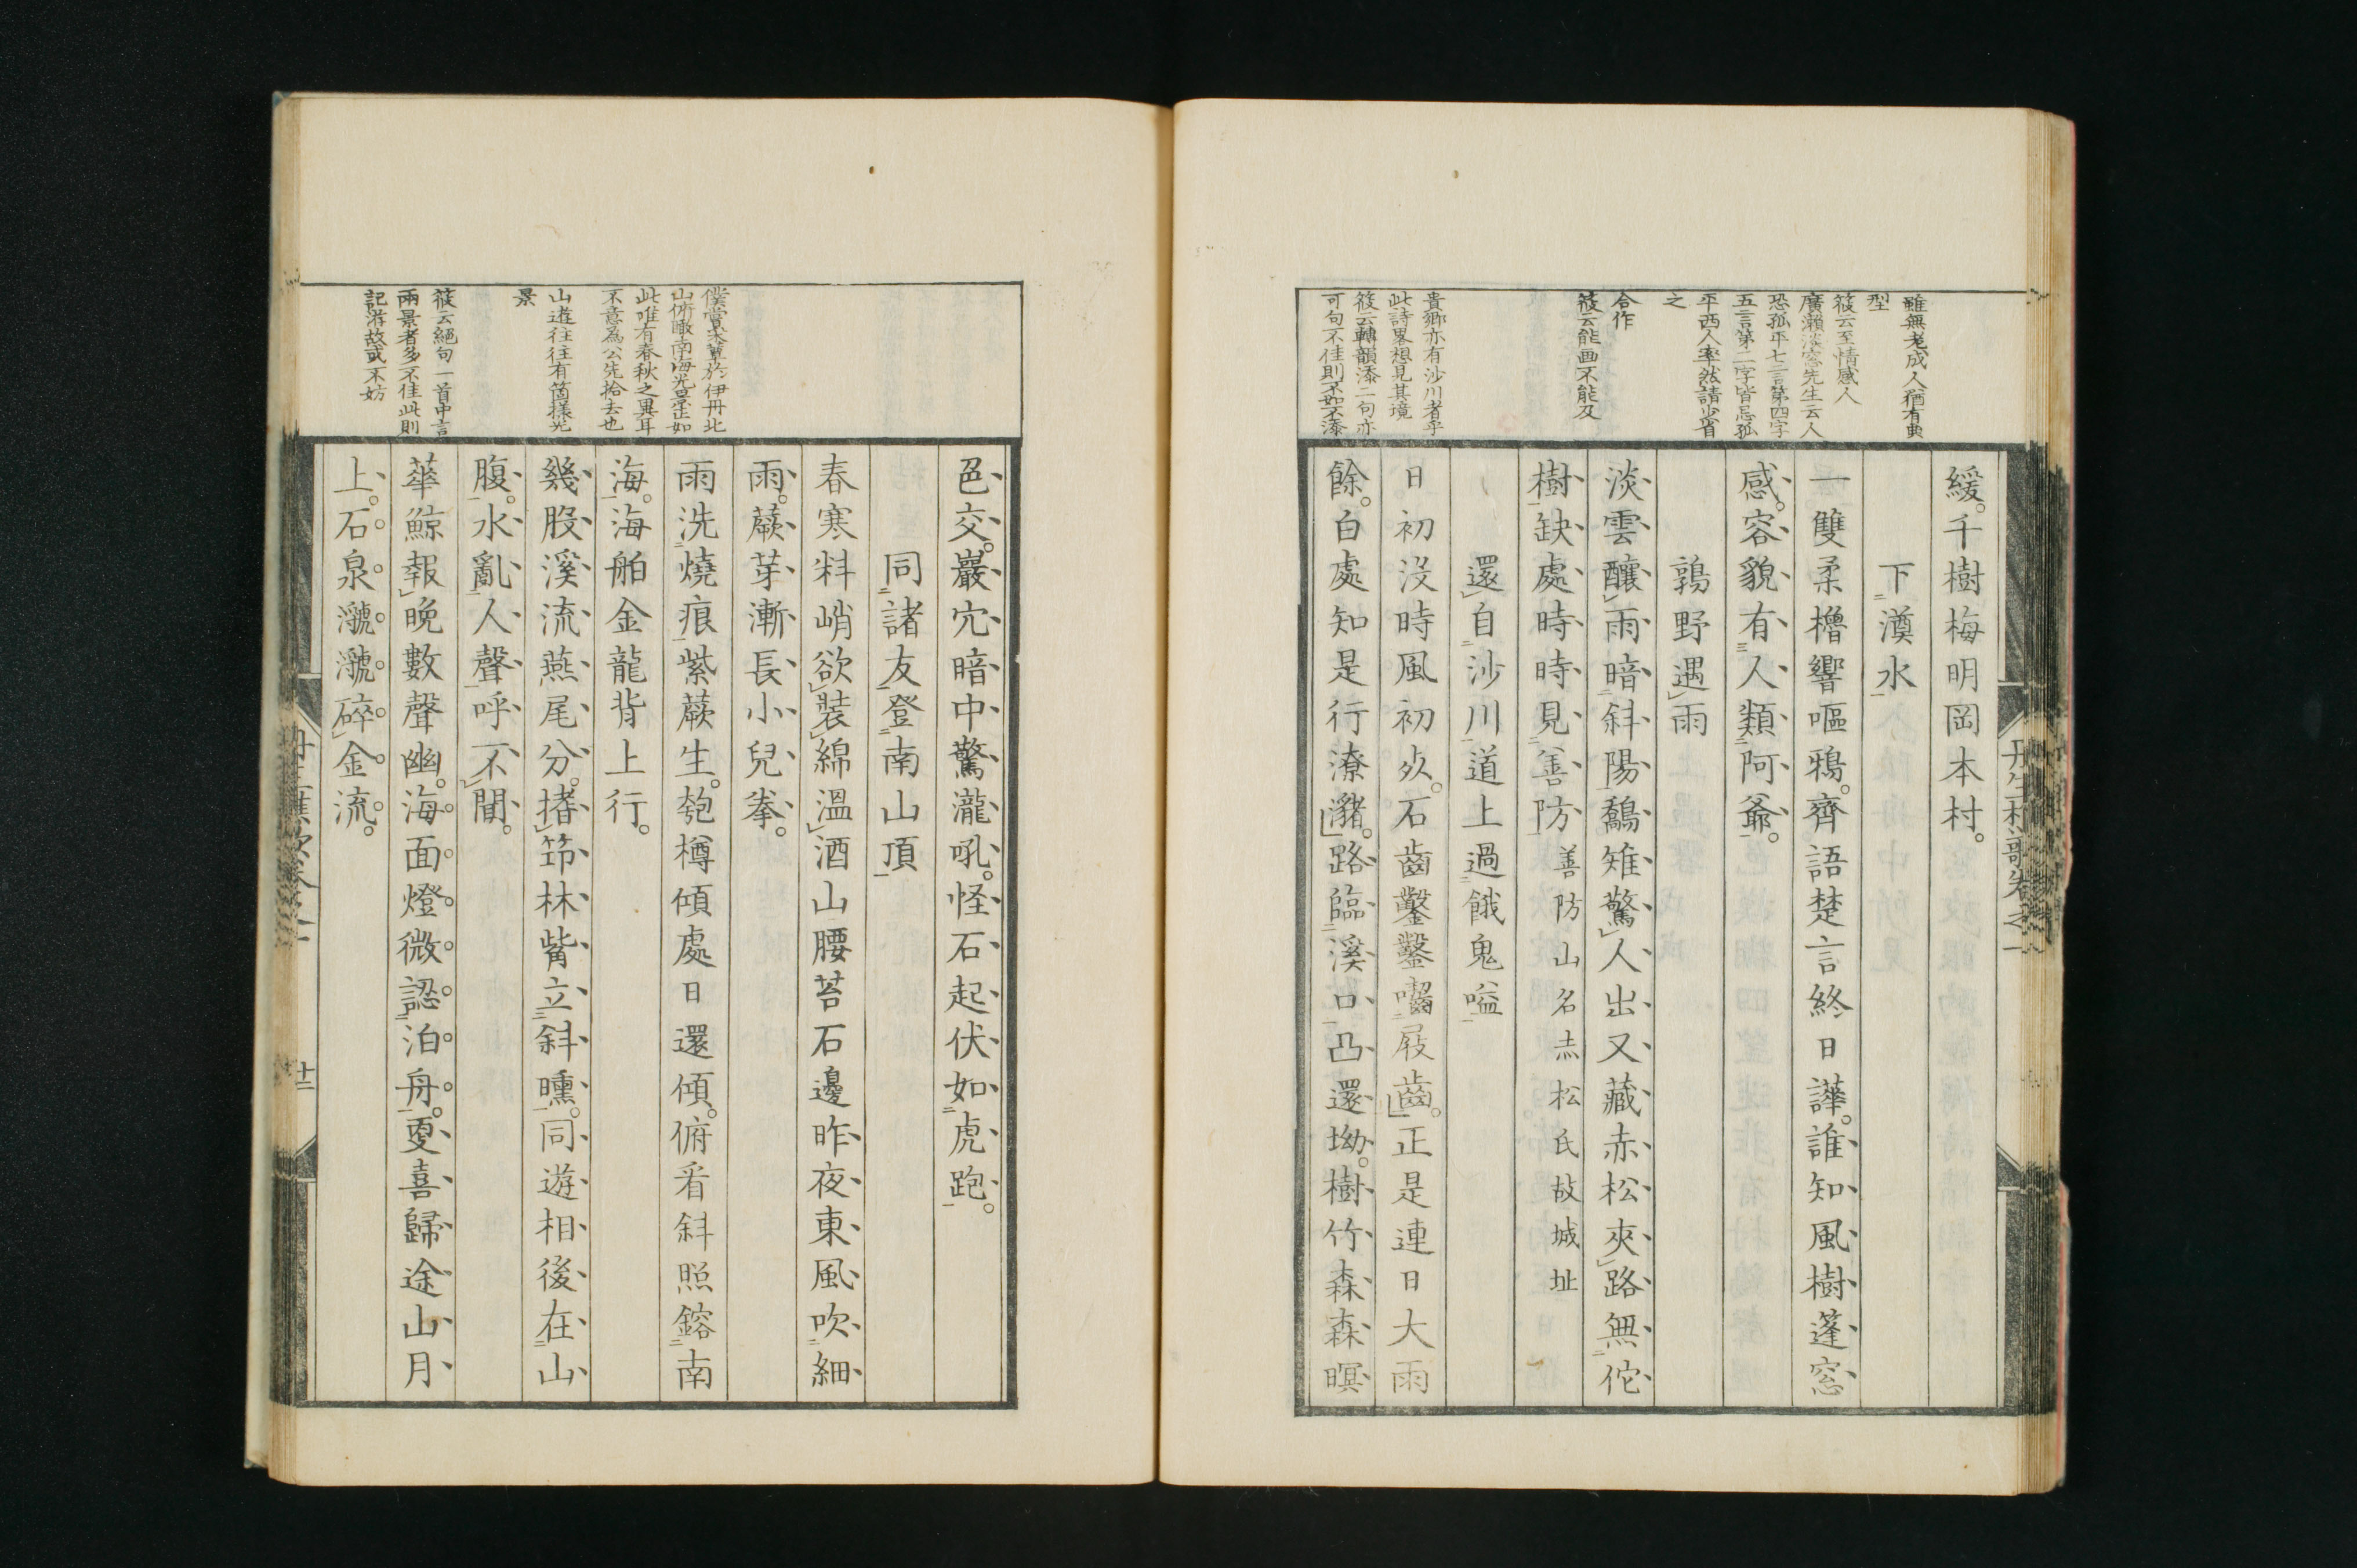 雖無老成人猶有典
型
筱云至情感人
廣瀨淡窓先生云人
恐孤平七言第四字
五言第二字皆忌孤
平西人率然請少省
之
合作
筱云能画不能及
貴鄉亦有沙川者乎
此詩畧想見其境
筱云轉韻添二句亦
可句不佳則不如不添
緩。千樹梅明岡本村。
下澫水
一雙柔櫓響嘔鴉。齊語楚言終日譁。誰知風樹篷窓
感。容貌有人類阿爺。
鶉野遇雨
淡雲釀雨暗斜陽鷸雉驚人出又藏赤松夾路無佗
樹缺處時時見善防善防山名赤松氏故城址
還自沙川道上過餓鬼嗌
日初沒時風初夊。石齒鑿鑿囓屐齒。正是連日大雨
餘。白處知是行潦瀦。路臨溪口凸還坳。樹竹森森暝
丹生樵歌卷之一
色交。巖穴暗中驚瀧吼。怪石起伏如虎跑。
同諸友登南山頂
春寒料峭欲裝綿溫酒山腰苔石邊昨夜東風吹細
雨。蕨芽漸長小兒拳。
雨洗燒痕紫蕨生。匏樽傾處日還傾。俯看斜照鎔南
海。海舶金龍背上行。
幾股溪流燕尾分。搘筇林觜立斜曛。同遊相後在山
腹。水亂人聲呼不聞。
華鯨報晩數聲幽。海面燈微認泊舟。更喜歸途山月
上。石泉㶁㶁碎金流。
僕嘗采蕈於伊丹北
山俯瞰南海光景正如
此唯有春秋之異耳
不意為公先拾去也
山遊往往有箇樣光
景
筱云絕句一首中言
兩景者多不佳此則
記游故或不妨
丹生樵歌卷之一 十二